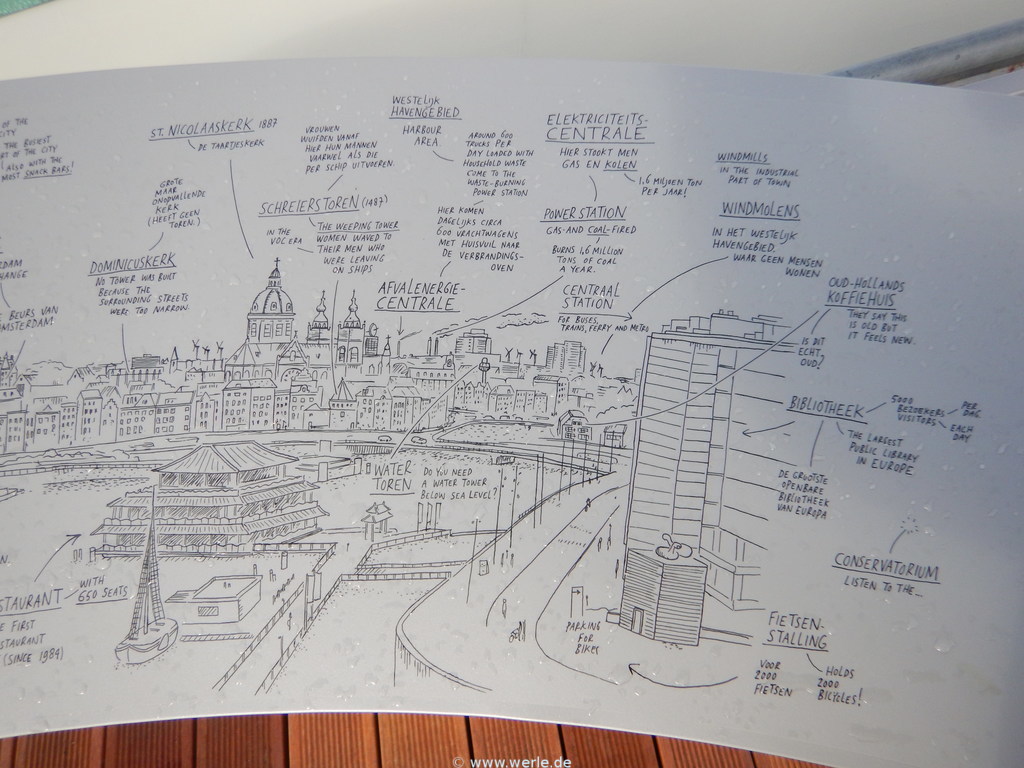 OF THE
CITY
THE BUSIEST
OF THE CITY
ALSO WITH THE
MOST SNACK BARS!
ST. NICOLAASKERK 1887
DE TAARTJESKERK
GROTE
MAAR
ONOPVALLENDE
KERK
(HEEFT GEEN
TOREN.)
DOMINICUSKERK
NO TOWER WAS BUILT
BECAUSE THE
SURROUNDING STREETS
WERE TOO NARROW.
BEURS VAN
VROUWEN
WUIFDEN VANAF
HIER HUN MANNEN
VAARWEL ALS DIE
PER SCHIP UITVOEREN.
SCHREIERSTOREN (1487)
IN THE
VOC ERA
THE WEEPING TOWER
WOMEN WAVED TO
THEIR MEN WHO
WERE LEAVING
ON SHIPS
WESTELIJK
HAVENGEBIED
HARBOUR
AREA
AROUND 600
TRUCKS PER
DAY LOADED WITH
HOUSEHOLD WASTE
COME TO THE
WASTE-BURNING
POWER STATION
HIER KOMEN
DAGELIJKS CIRCA
600 VRACHTWAGENS
MET HUISVUIL NAAR
DE VERBRANDINGS-
OVEN
AFVALENERGIE-
CENTRALE
ELEKTRICITEITS-
CENTRALE
HIER STOOKT MEN
GAS EN KOLEN
1,6 MILJOEN TON
PER JAAR!
POWER STATION
GAS-AND COAL-FIRED
BURNS 1,6 MILLION
TONS OF COAL
A YEAR.
CENTRAAL
STATION
FOR BUSES,
TRAINS, FERRY AND METRO
WINDMILLS
IN THE INDUSTRIAL
PART OF TOWN
WINDMOLENS
IN HET WESTELIJK
HAVENGEBIED,
WAAR GEEN MENSEN
WONEN
OUD-HOLLANDS
KOFFIEHUIS
THEY SAY THIS
IS OLD BUT
IT FEELS NEW.
IS DIT
ECHT
OUD?
BIBLIOTHEEK
5000
BEZOEKERS
VISITORS
PER
DAG
EACH
DAY
THE LARGEST
PUBLIC LIBRARY
IN EUROPE
DE GROOTSTE
OPENBARE
BIBLIOTHEEK
VAN EUROPA
WATER
TOREN
DO YOU NEED
A WATER TOWER
BELOW SEA LEVEL?
CONSERVATORIUM
LISTEN TO THE...
WITH
650 SEATS
FIRST
(SINCE 1984)
P
PARKING
FOR
BIKES
FIETSEN-
STALLING
VOOR
2000
FIETSEN
HOLDS
2000
BICYCLES!
© www.werle.de